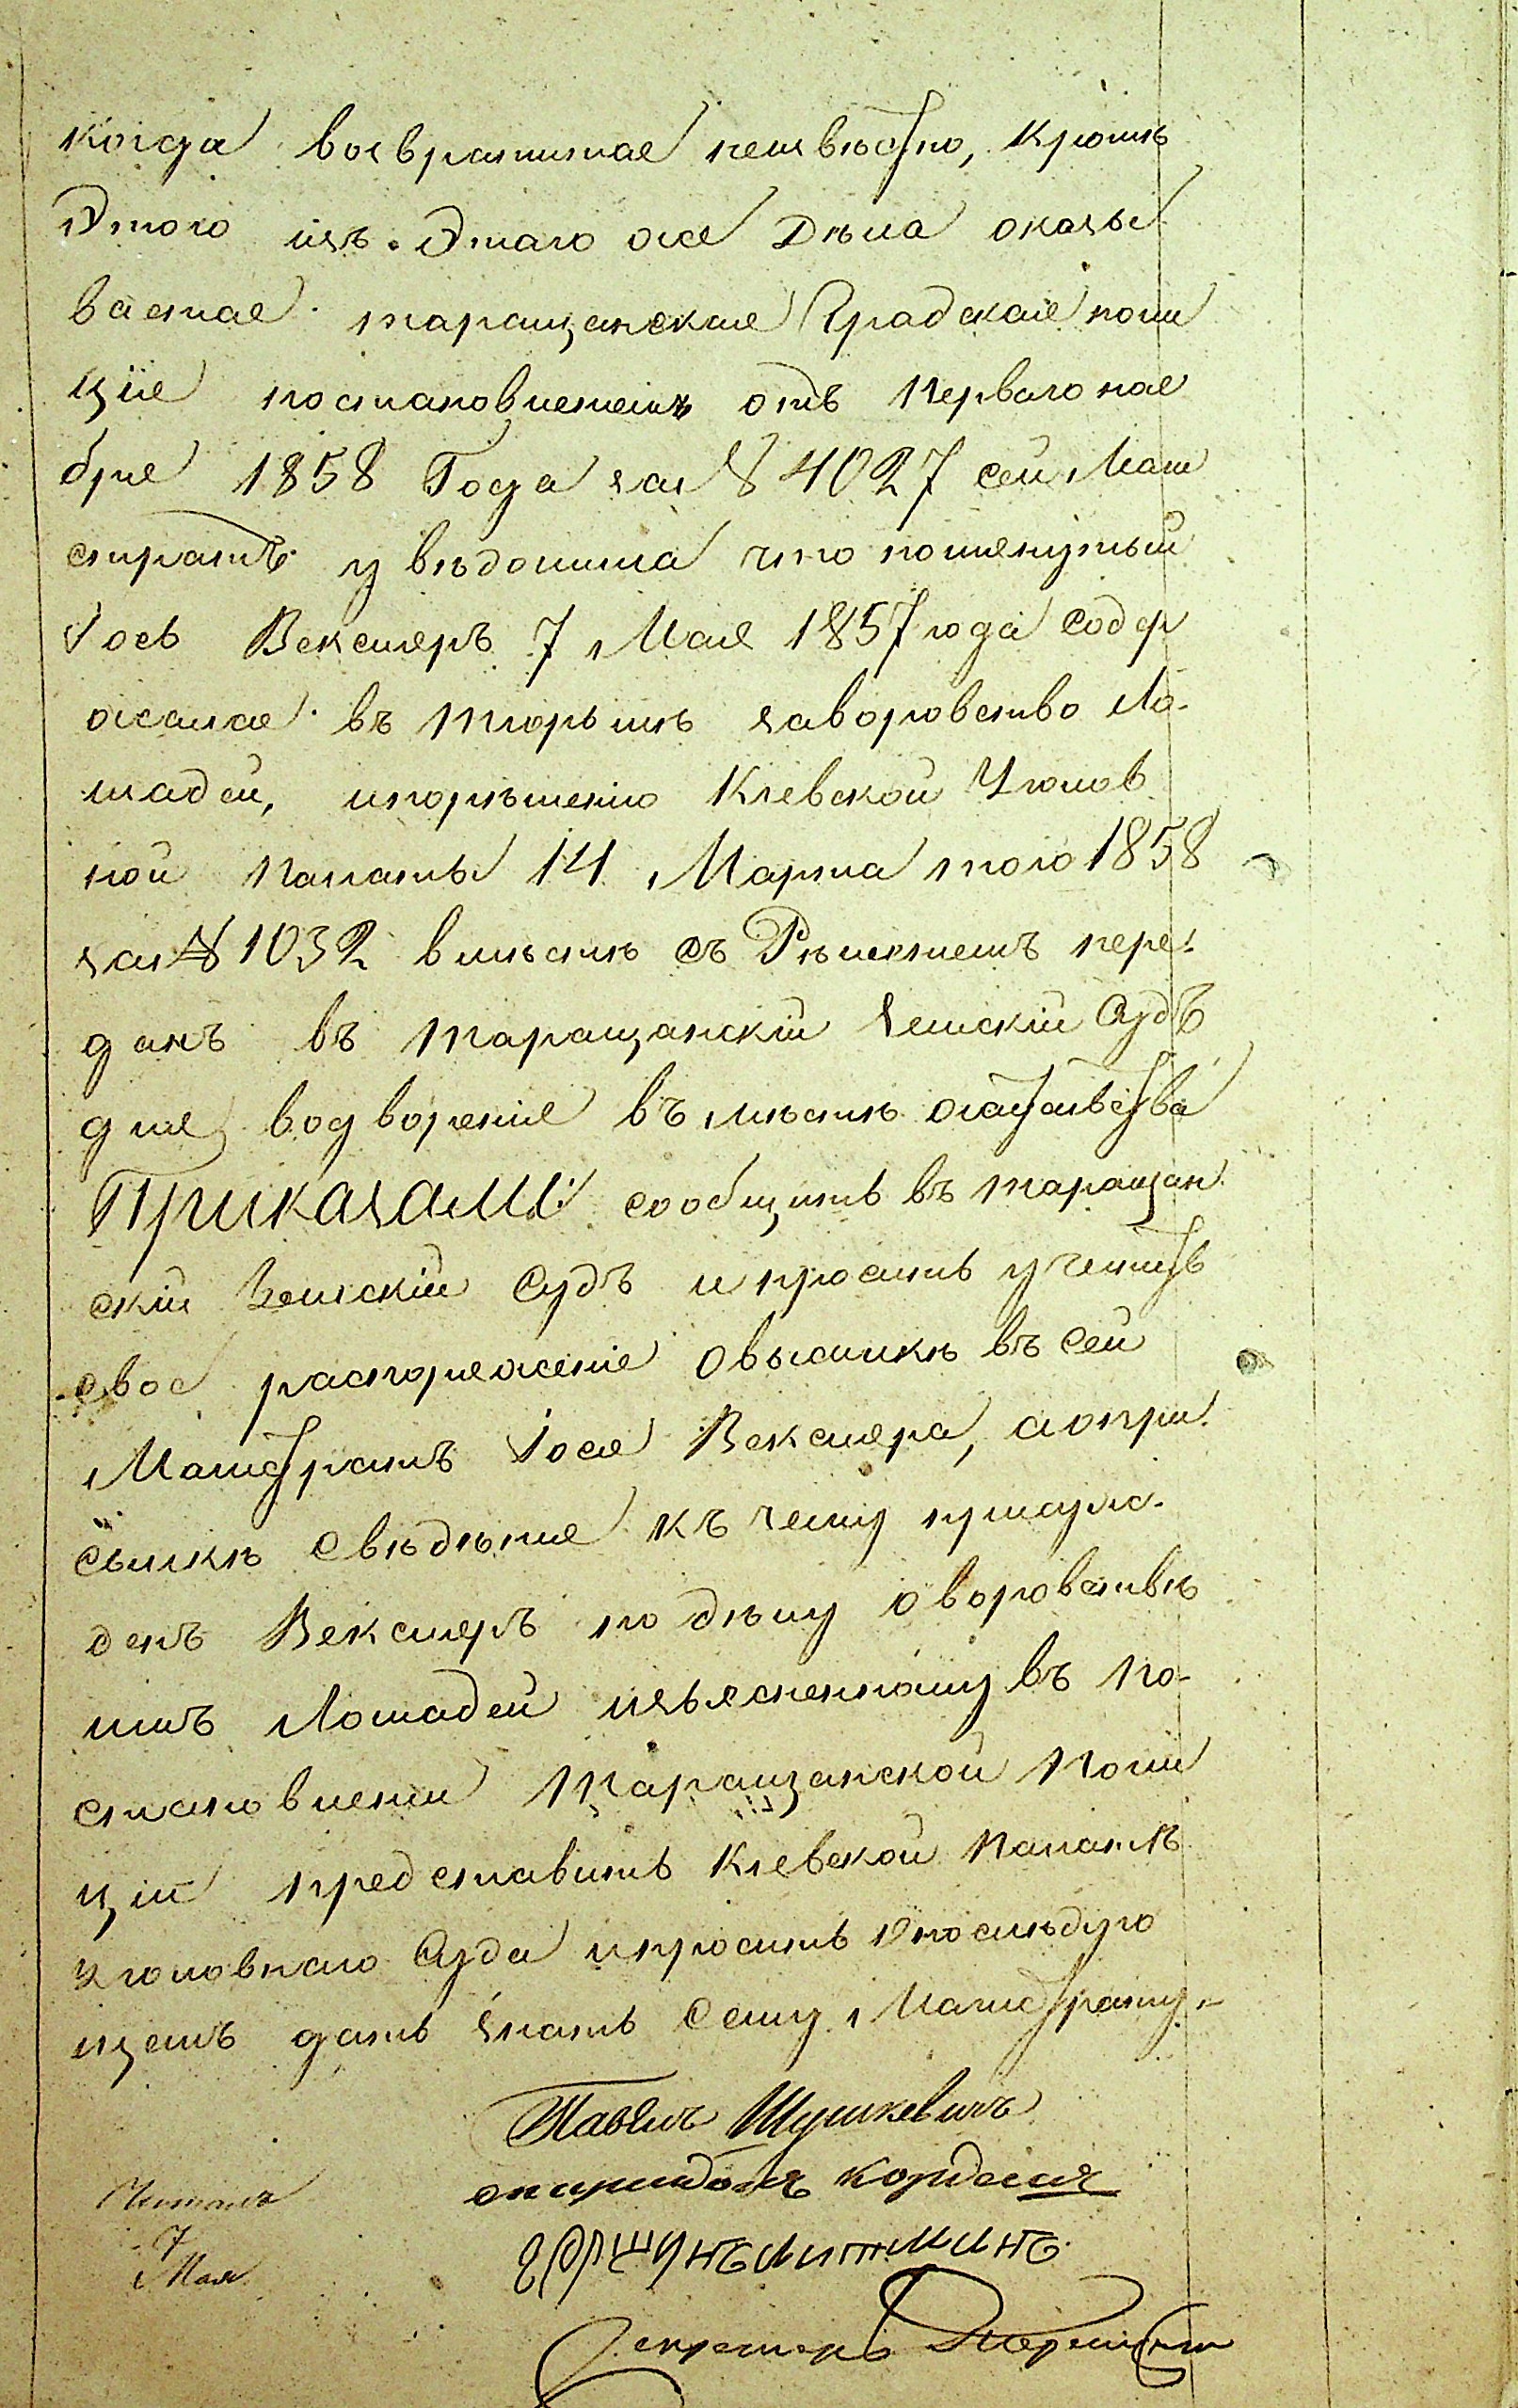 когда возвратится неизвѣстно, кромѣ
Этого изъ Этаго же Дѣла оказы
вается таращанская Градская поли
ція постановленіемъ отъ перваго ноя
бря 1858 Года за № 4027 сей Маги
стратъ увѣдомила что помянутый
Іось Векслеръ 7 Мая 1857 года содер
жался въ тюрьмѣ заворовство Ло-
шадей, ипорѣшенію Кіевской Уголов
ной палаты 14 Марта того 1858
за № 1032 вмѣстѣ съ Рѣшеніемъ пере
данъ въ таращанскій Земскій Судъ
для водворенія въ мѣстѣ жительства
Приказали: сообщить въ таращан
скій Земскій Судъ ипросить учинить
свое распоряженіе овысылкѣ въ сей
Магистратъ Іося Векслера, аопри
сылкѣ свѣдѣнія къ чему присуж-
денъ Векслеръ по дѣлу оворовствѣ
имъ Лошадей изъясненному въ по-
становленіи Таращанской поли
ціи представить Кіевской палатѣ
уголовнаго Суда ипросить Опослѣдую
щемъ дать знать Сему Магистрату.
Шушкевичъ
Читалъ
7
Мая
Секретарь